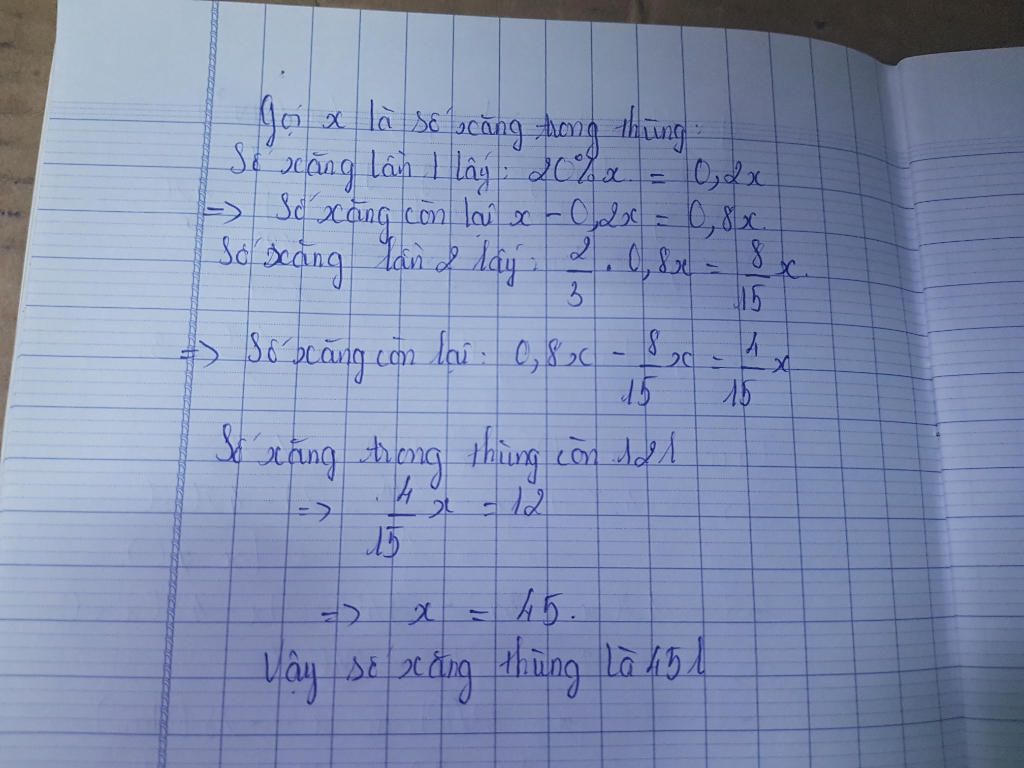 Gọi x là số xăng trong thùng:
Số xăng lần 1 lấy: 20% x = 0,2x
=> Số xăng còn lại x - 0,2x = 0,8x.
Số xăng lần 2 lấy: 2/3 . 0,8x = 8/15 x.
=> Số xăng còn lại: 0,8x - 8/15 x = 4/15 x
Số xăng trong thùng còn 12l
=> 4/15 x = 12
=> x = 45.
Vậy số xăng thùng là 45l